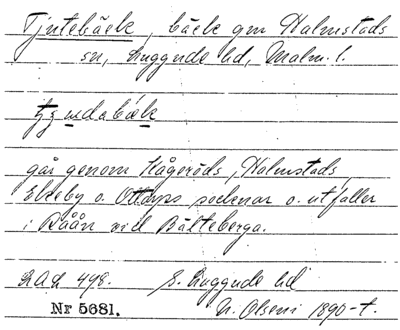 Tjutebäck, bäck gm Halmstads
sn, Luggude hd, Malm. l.
går genom Kågeröds, Halmstads,
Ekeby o. Ottarps socknar o. utfaller
i Råån vid Bälteberga.
RAÄ 498. S. Luggude hd
Nr 5681. N. Olséni 1890-t.